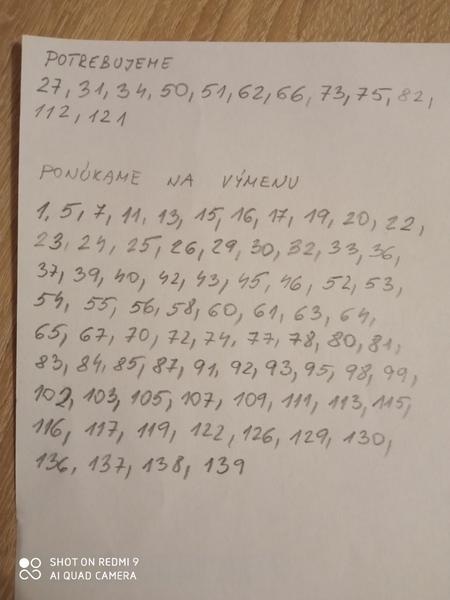 POTREBUJEME
27, 31, 34, 50, 51, 62, 66, 73, 75, 82,
112, 121
PONÚKAME NA VÝMENU
1, 5, 7, 11, 13, 15, 16, 17, 19, 20, 22,
23, 24, 25, 26, 29, 30, 32, 33, 36,
37, 39, 40, 42, 43, 45, 46, 52, 53,
54, 55, 56, 58, 60, 61, 63, 64,
65, 67, 70, 72, 74, 77, 78, 80, 81,
83, 84, 85, 87, 91, 92, 93, 95, 98, 99,
102, 103, 105, 107, 109, 111, 113, 115,
116, 117, 119, 122, 126, 129, 130,
136, 137, 138, 139
SHOT ON REDMI 9
AI QUAD CAMERA